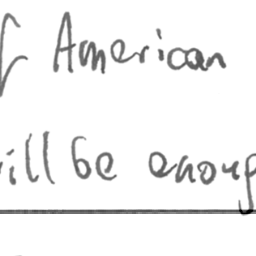 f American
ill be enoug